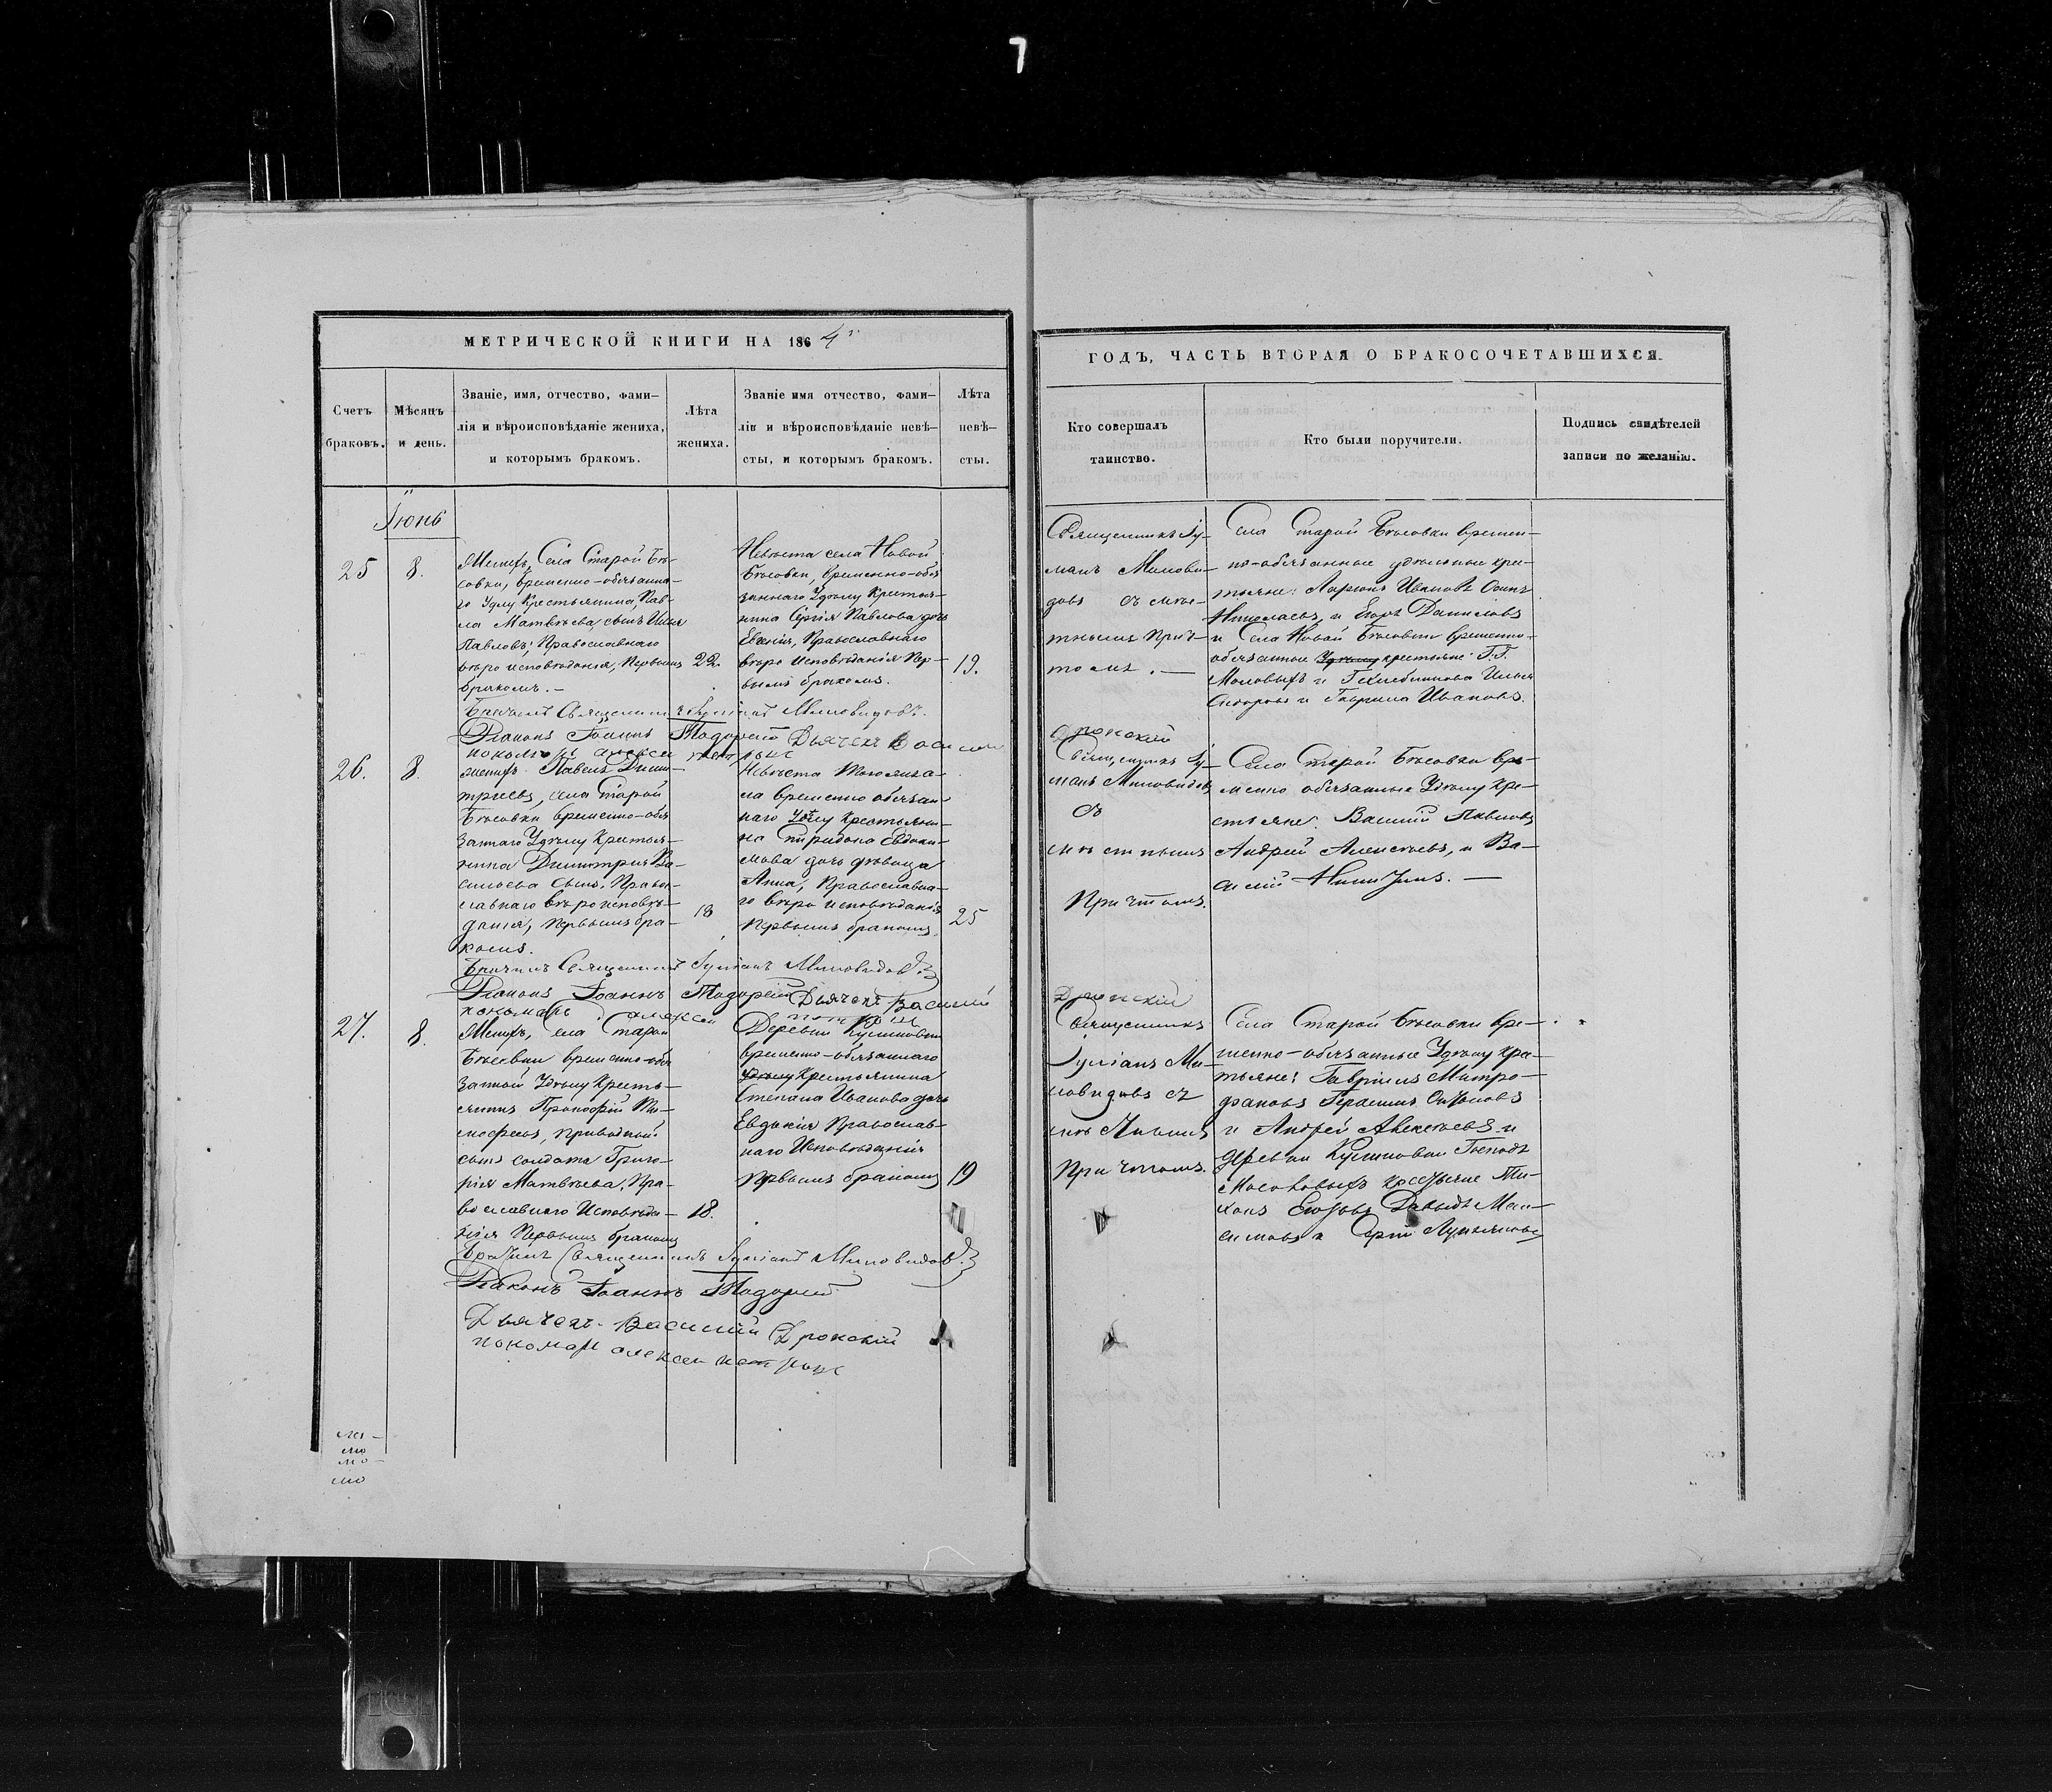 МЕТРИЧЕСКОЙ КНИГИ НА 1864
Счетъ
браковъ.
Мѣсяцъ
и день.
Званіе, имя, отчество, фами-
лія и вѣроисповѣданіе жениха,
и которымъ бракомъ.
Лѣта
жениха.
Званіе имя отчество, фами-
лія и вѣроисповѣданіе невѣ-
сты, и которымъ бракомъ.
Лѣта
невѣ-
сты.
Іюнь
25
8.
Женихъ, Села Старой Бѣ-
совки, временно-обязанна-
го Удѣлу Крестьянина, Пав-
ла Матвѣева сынъ Илья
Павловъ, Православнаго
вѣроисповѣданія, Первымъ
бракомъ.-
22.
Невѣста села Новой
Бѣсовки, временно-обя-
заннаго Удѣлу Крестья-
нина Сергія Павлова дочь
Евгенія, Православнаго
вѣроисповѣданія Пер-
вымъ бракомъ.
19.
Бракъ Священникъ Миловидовъ.
Діаконъ Іоаннъ Дьячекъ Василій
пономарь алексей
26.
8.
Женихъ Павелъ Дими-
тріевъ, села Старой
Бѣсовки временно-обя-
заннаго Удѣлу Крестья-
нина Димитрія Ва-
сильева сынъ, Право-
славнаго вѣроисповѣ-
данія, Первымъ бра-
комъ.
18
Невѣста тогожъ се-
ла временно обязан-
наго Удѣлу Крестьяни-
на Спиридона Евдоки-
мова дочь дѣвица
Анна, Православна-
го вѣроисповѣданія
Первымъ бракомъ
25
Священникъ Іуліанъ Миловидовъ
Діаконъ Іоаннъ Дьячекъ Василій
пономарь алексей
27.
8.
Женихъ, села Старой
Бѣсовки временно-обя-
занной Удѣлу Кресть-
янинъ Прокофій Ти-
мофеевъ, приводный
сынъ солдата Григо-
рія Матвѣева, Пра-
вославнаго Исповѣда-
нія Первымъ бракомъ
18.
Деревни
временно-обязаннаго
Удѣлу Крестьянина
Степана Иванова дочь
Евдокія Православ-
наго Исповѣданія
Первымъ бракомъ
19
Священникъ Іуліанъ Миловидовъ
Діаконъ Іоаннъ
Дьячекъ Василій Дронскій
пономарь алексей
ГОДЪ, ЧАСТЬ ВТОРАЯ О БРАКОСОЧЕТАВШИХСЯ.
Кто совершалъ
таинство.
Кто были поручители.
Подпись свидѣтелей
записи по желанію.
Священникъ Іу-
ліанъ Милови-
довъ съ мѣс-
тнымъ Прич-
томъ.-
Села Старой Бѣсовки времен-
но-обязанные удѣльные кре-
стьяне: Ларіонъ Ивановъ Осипъ
Николаевъ, и Егоръ Даниловъ
и Села Новой Бѣсовки временно-
обязанные Удѣлу крестьяне Г.Г.
Илья
и Гаврила Ивановъ.
Дронскій
Священникъ Іу-
ліанъ Миловидовъ
съ
мѣстнымъ
Причтомъ.
Села Старой Бѣсовки вре-
менно обязанные Удѣлу Кре-
стьяне: Василій Павловъ
Андрей Алексѣевъ, и Ва-
силій
Дронскій
Священникъ
Іуліанъ Ми-
ловидовъ съ
мѣстнымъ
Причтомъ.
Села Старой Бѣсовки вре-
менно-обязанные Удѣлу кре-
стьяне: Гавріилъ Митро-
фановъ Герасимъ
и Андрей Алексѣевъ и
деревни Господъ
крестьяне Ти-
хонъ Егоровъ Давыдъ Мак-
симовъ и